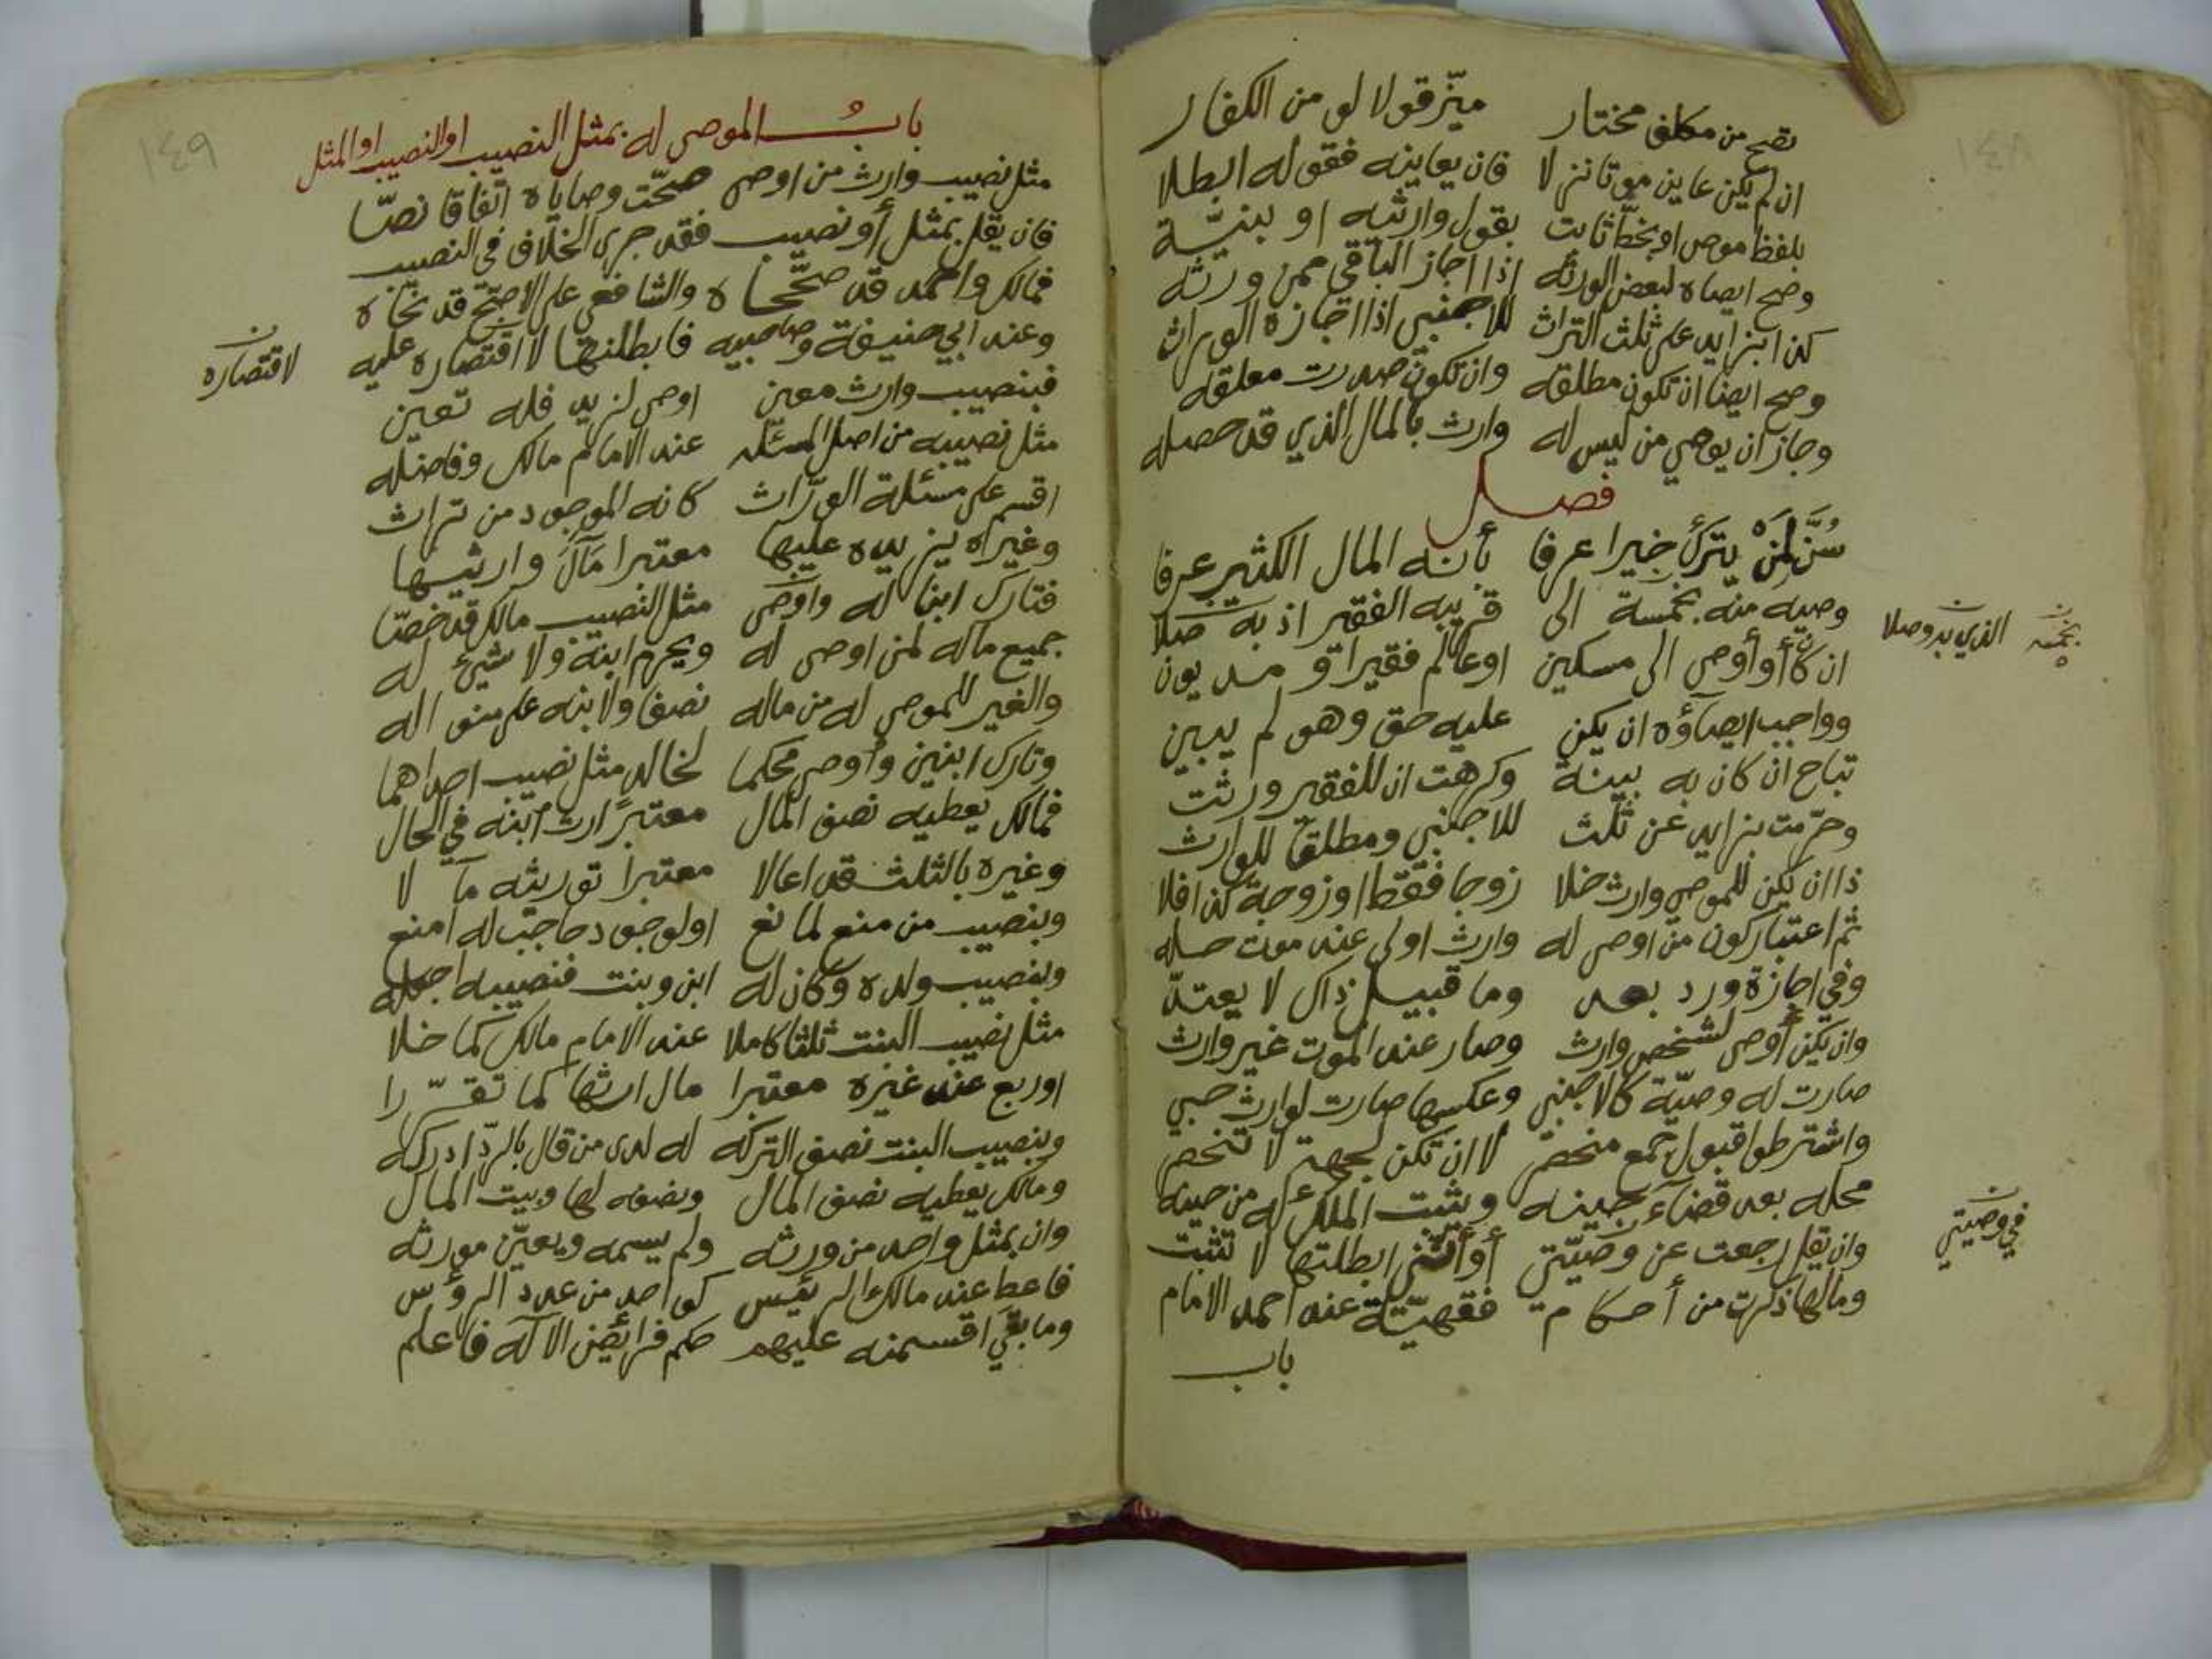 ١٤٨
تصح من مكلف مختار مميّز قولا لو من الكفار
ان لم يكن عاين موتا نزلا فان يعاينه فقوله ابطلا
بلفظ موص او بخطّ ثابت بقول وارثه او ببنيّة
وصح ايصاه لبعض الورثه اذا اجاز الباقي ممن ورثه
كذا بزايد على ثلث التراث للاجنبي اذا اجازه الوراث
وصح ايضا ان تكون مطلقه وان تكون صدرت معلقه
وجاز ان يوصي من ليس له وارث بالمال الذي قد حصله
فصل
سُنَّ لمَنْ يترك خيرا عرفا بأنه المال الكثير عرفا
وصيه منه بخمسة الى قريبه الفقير اذ به صلا
ان كان أو أوصى الى مسكين او عالم فقير او مديون
وواجب ايصاؤه ان يكن عليه حق وهو لم يبين
تباح ان كان به بينة وكرهت ان للفقير ورثت
وحرّمت بزايد عن ثلث للاجنبي ومطلقا للوارث
ذا ان يكن للموصي وارث خلا زوجا فقط او زوجة كذا فلا
ثم اعتبار كون من اوصى له وارث اولى عند موت حصله
وفي اجازة ورد بعد وما قبيل ذاك لا يعتدّ
وان يكن أوصى لشخص وارث وصار عند الموت غير وارث
صارت له وصيّة كالاجنبي وعكسها صارت لوارث حبي
واشترطوا قبول جمع منحصر لا ان تكن لجهة لا تنحصر
محله بعد قضاء حينه ويثبت الملك له من حينه
وان يقل رجعت عن وصيّتي أو أنني ابطلتها لا تثبت
ومالها ذكرت من أحكام فقهيّة عند احمد الامام
باب
بخمسه
الذي به وصلا
في وصيتي
١٤٩
باب الموصى له بمثل النصيب او النصيب او المثل
مثل نصيب وارث من اوصى صحّت وصاياه اتّفاقا نصّا
فان يقل بمثل أو نصيب فقد جرى الخلاف في النصيب
فمالك واحمد قد صحّحاه والشافعي على الاصحّ قد نحاه
وعند ابي حنيفة وصاحبيه فابطلنها لا اقتصاره عليه
لاقتصاره
فبنصيب وارث معين اوصى لزيد فله تعين
مثل نصيبه من اصل المسئله عند الامام مالك وفاضله
اقسم على مسئلة الورّاث كانه الموجود من تراث
وغيراه يزيده عليها معتبرا مآل وارثيها
فتارك ابنا له واوصى مثل النصيب مالك قد خصّا
جميع ماله لمن اوصى له ويحرم ابنه ولا شيئ له
والغير للموصى له من ماله نصفا ولابنه على منواله
وتارك ابنين وأوصى محكما لخالد مثل نصيب احداهما
فمالك يعطيه نصف المال معتبراً ارث ابنه في الحال
وغيره بالثلث قد اعالا معتبرا توريثه مآلا
وبنصيب من منع لمانع او لوجود حاجب له امنع
وبنصيب ولده وكان له ابن وبنت فنصيبه اجعله
مثل نصيب البنت ثلثا كاملا عند الامام مالك كما خلا
او ربع عند غيره معتبرا مال ارثها كما تقرّرا
وبنصيب البنت نصف التركه له لدى من قال بالردّ ادركه
ومالك يعطيه نصف المال ونصفه لها وبيت المال
وان بمثل واحد من ورثه ولم يسمه ويعيّن مورثه
فاعط عند مالك الرئيس كواحد من عدد الرؤس
وما بقي اقسمنه عليهم حكم فرائض الاله فاعلم